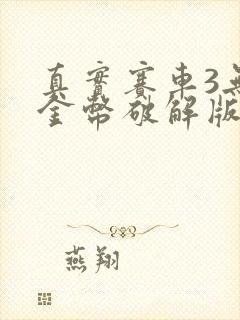 真實賽車3無
金幣破解版
燕翔